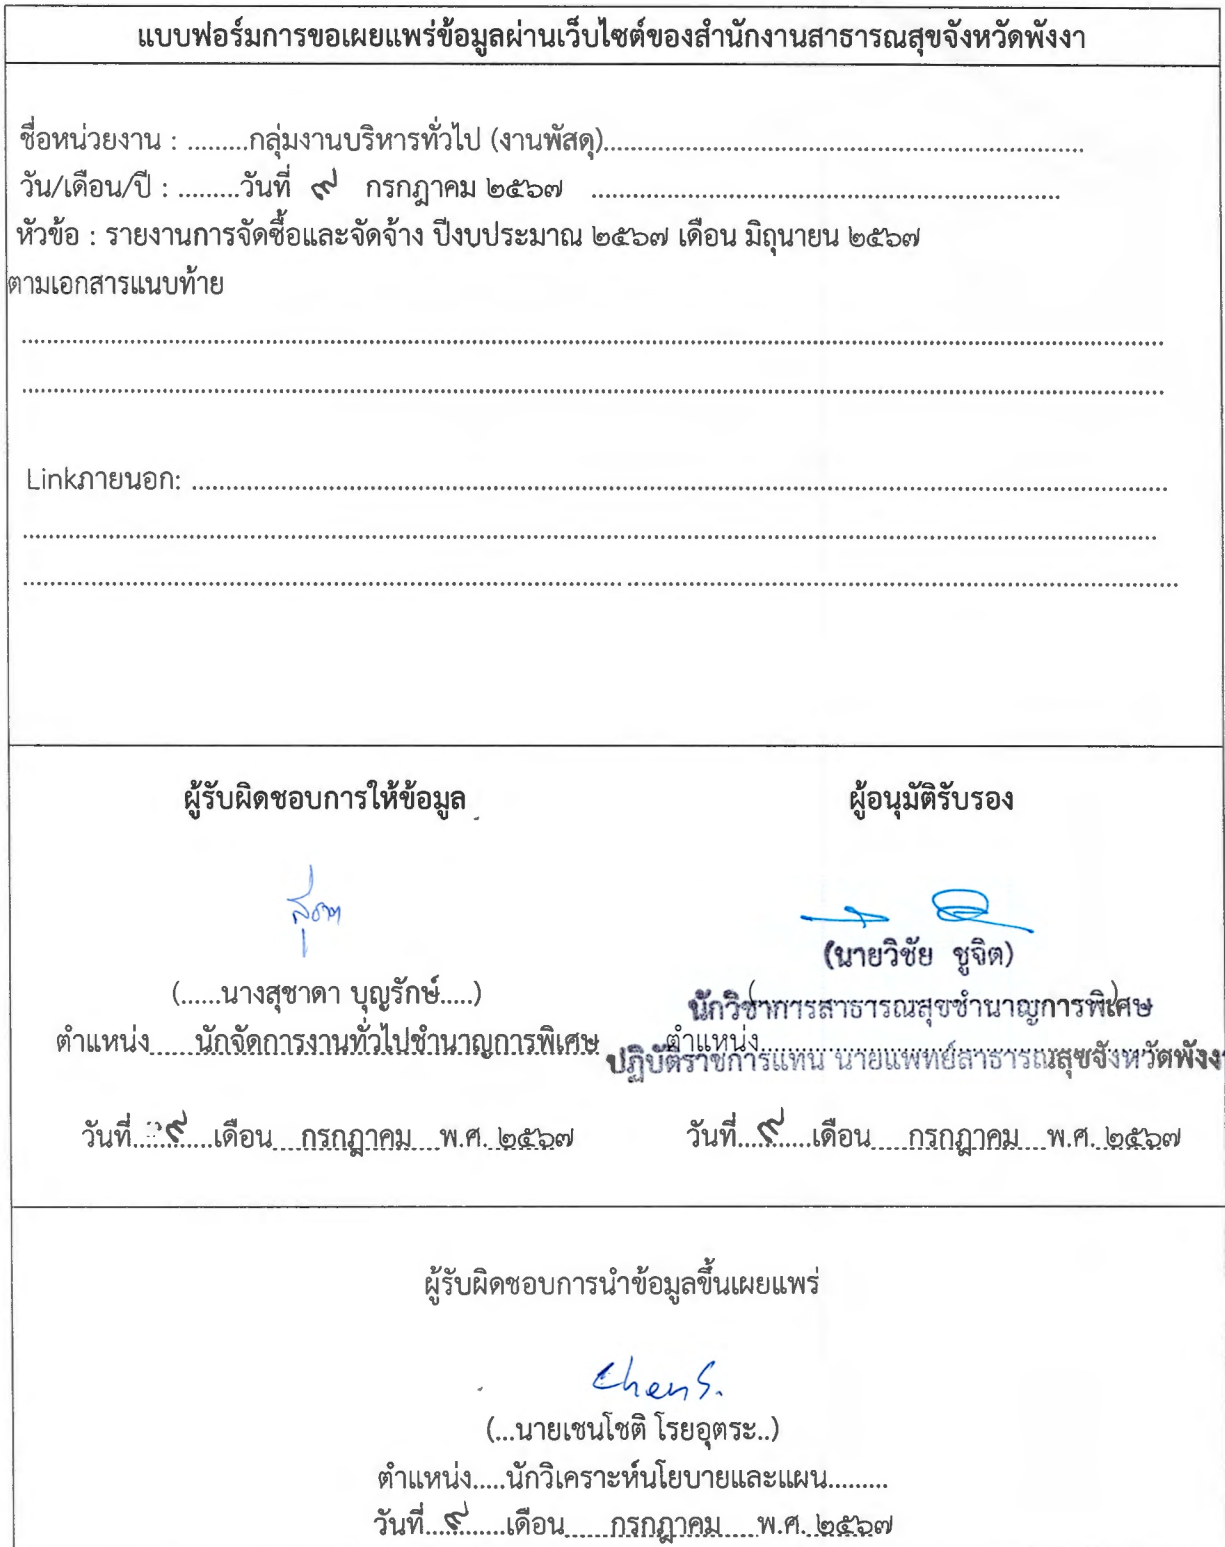 แบบฟอร์มการขอเผยแพร่ข้อมูลผ่านเว็บไซต์ของสำนักงานสาธารณสุขจังหวัดพังงา
ชื่อหน่วยงาน : .........กลุ่มงานบริหารทั่วไป (งานพัสดุ)........................................................................
วัน/เดือน/ปี : .........วันที่ ๙ กรกฎาคม ๒๕๖๗ ......................................................................
หัวข้อ : รายงานการจัดซื้อและจัดจ้าง ปีงบประมาณ ๒๕๖๗ เดือน มิถุนายน ๒๕๖๗
ตามเอกสารแนบท้าย
Linkภายนอก: ....................................................................................
ผู้รับผิดชอบการให้ข้อมูล
(......นางสุชาดา บุญรักษ์.....)
ตำแหน่ง......นักจัดการงานทั่วไปชำนาญการพิเศษ
วันที่....๙.....เดือน....กรกฎาคม....พ.ศ. ๒๕๖๗
ผู้อนุมัติรับรอง
(นายวิชัย ชูจิต)
นักวิชาการสาธารณสุขชำนาญการพิเศษ
ตำแหน่ง......................................................
ปฏิบัติราชการแทน นายแพทย์สาธารณสุขจังหวัดพังงา
วันที่....๙.....เดือน.....กรกฎาคม....พ.ศ. ๒๕๖๗
ผู้รับผิดชอบการนำข้อมูลขึ้นเผยแพร่
Chen S.
(...นายเชนโชติ โรยอุตระ..)
ตำแหน่ง.....นักวิเคราะห์นโยบายและแผน.........
วันที่....๙.....เดือน......กรกฎาคม.....พ.ศ. ๒๕๖๗